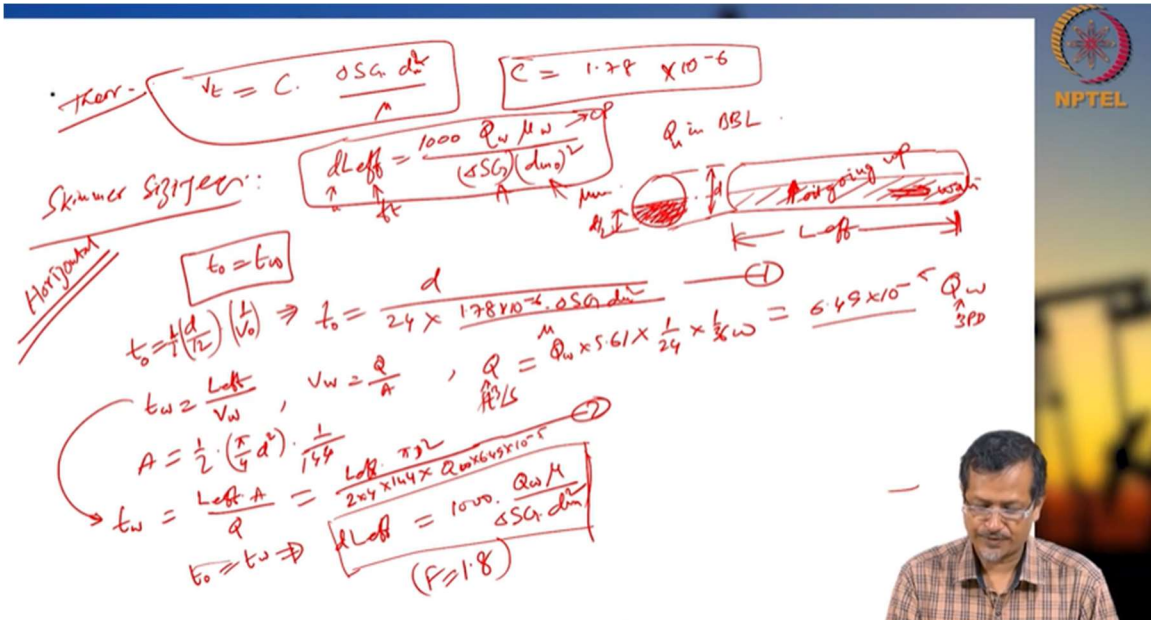 Theor. Vt = C. ΔSG. dm² / μ
C = 1.78 × 10⁻⁶
NPTEL
Skimmer Sizing Eqn:
dLeff = 1000 Qw μw / (ΔSG)(dmo)²
cp
ft
μm
Q in BBL
d/2
d
oil going up
Leff
Horizontal
to = tw
to = 1/2 (d/12) (1/Vo) ⇒ to = d / 24 × 1.78×10⁻⁶. ΔSG. dm² / μ ①
tw = Leff / Vw , Vw = Q / A , Q = Qw × 5.61 × 1/24 × = 6.49×10⁻⁵ Qw
ft³/s
BPD
A = 1/2 . (π/4 d²) . 1/144
tw = Leff. A / Q = Leff. πd² / 2×4×144× Qw×6.49×10⁻⁵ ②
to = tw ⇒ dLeff = 1000. Qw μ / ΔSG. dm²
(F = 1.8)